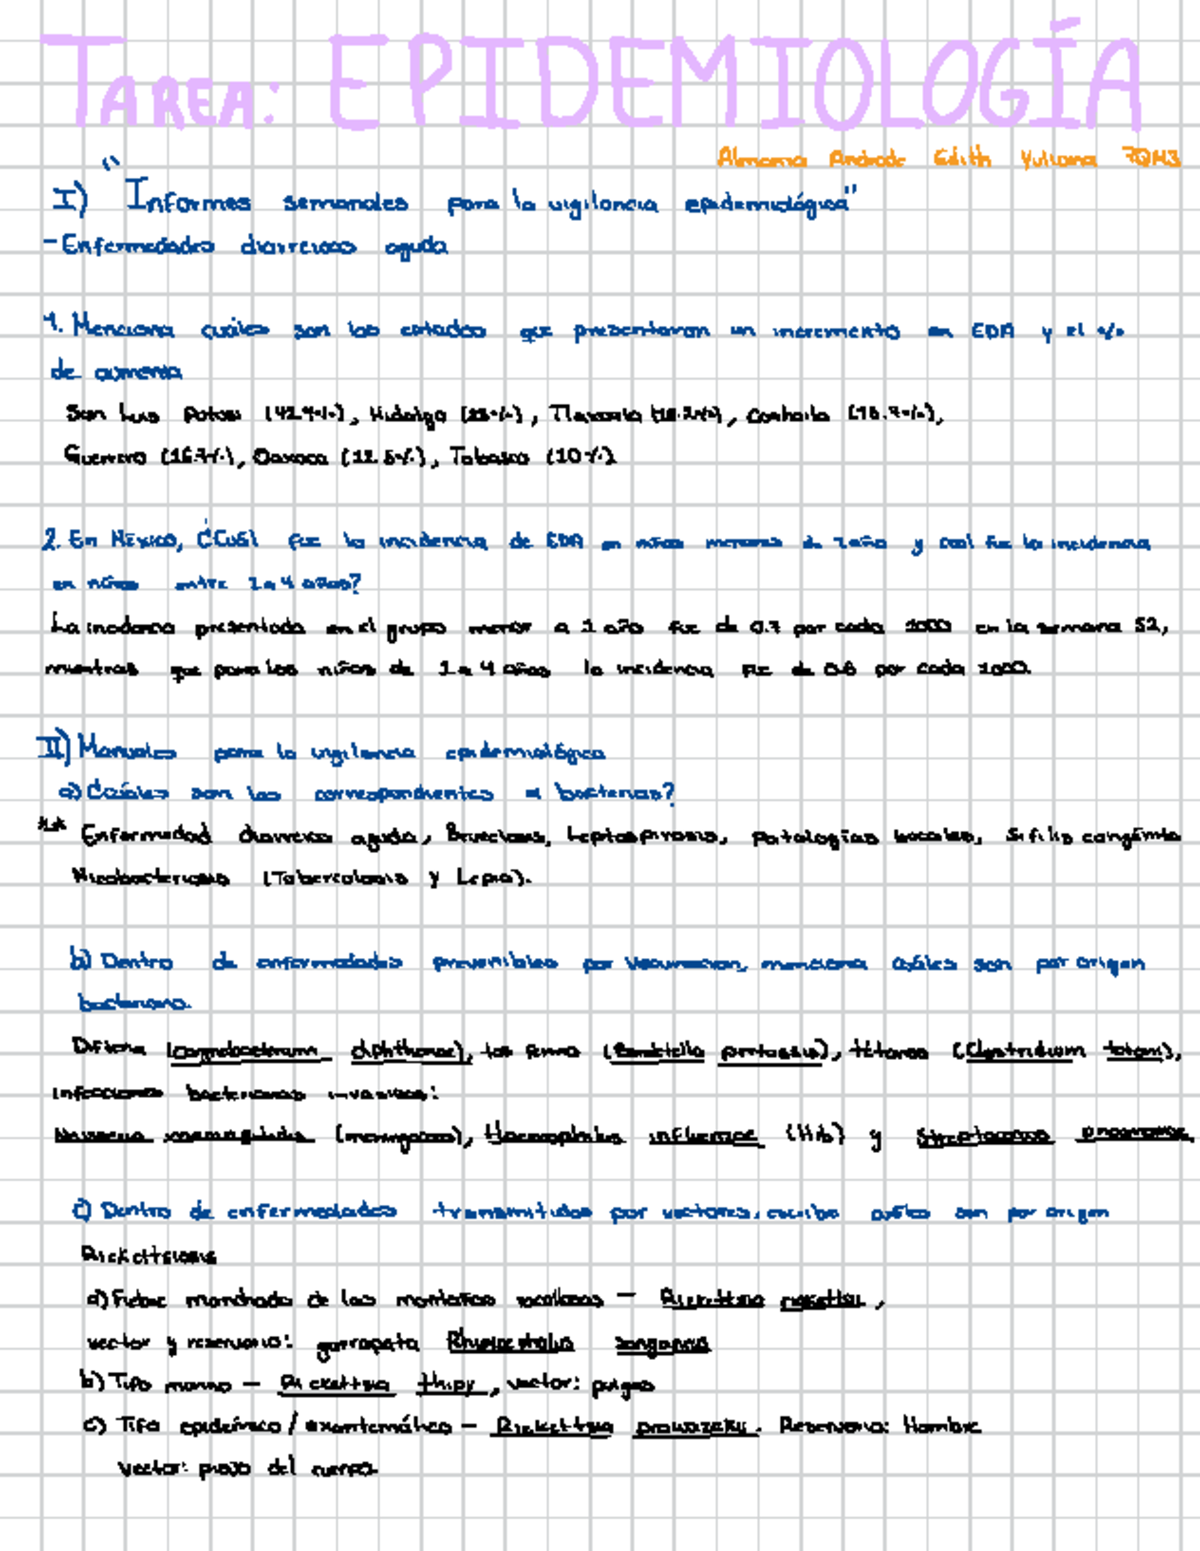 TAREA: EPIDEMIOLOGÍA
Almama Andrade Edith Yuliana 7QM3
I) "Informes semanales para la vigilancia epidemiológica"
-Enfermedades diarreicas aguda
1. Menciona cuáles son los estados que presentaron un incremento en EDA y el %
de aumento
San Luis Potosí (42.9%), Hidalgo (25%), Tlaxcala (18.2%), Coahuila (16.7%),
Guerrero (16.7%), Oaxaca (12.5%), Tabasco (10%)
2. En México, ¿Cuál fue la incidencia de EDA en niños menores de 1 año y cual fue la incidencia
en niños entre 1 a 4 años?
La incidencia presentada en el grupo menor a 1 año fue de 0.7 por cada 1000 en la semana 52,
mientras que para los niños de 1 a 4 años la incidencia fue de 0.6 por cada 1000.
II) Manuales para la vigilancia epidemiológica
a) Cuáles son los correspondientes a bacterias?
** Enfermedad diarreica aguda, Brucelosis, Leptospirosis, patologías bucales, Sífilis congénita
Micobacteriosis (Tuberculosis y Lepra).
b) Dentro de enfermedades prevenibles por vacunación, menciona cuáles son por origen
bacteriano.
Difteria (Corynebacterium diphtheriae), tos ferina (Bordetella pertussis), tétanos (Clostridium tetani),
infecciones bacterianas invasivas:
Neisseria meningitidis (meningococo), Haemophilus influenzae (Hib) y Streptococcus pneumoniae
c) Dentro de enfermedades transmitidas por vectores, escribe cuáles son por origen
Rickettsiosis
a) Fiebre manchada de las montañas rocallosas — Rickettsia rickettsii,
vector y reservorio: garrapata Rhipicephalus sanguineus
b) Tifo murino — Rickettsia thipy, vector: pulgas
c) Tifo epidémico / exantemático — Rickettsia prowazekii. Reservorio: Hombre
vector: piojo del cuerpo.